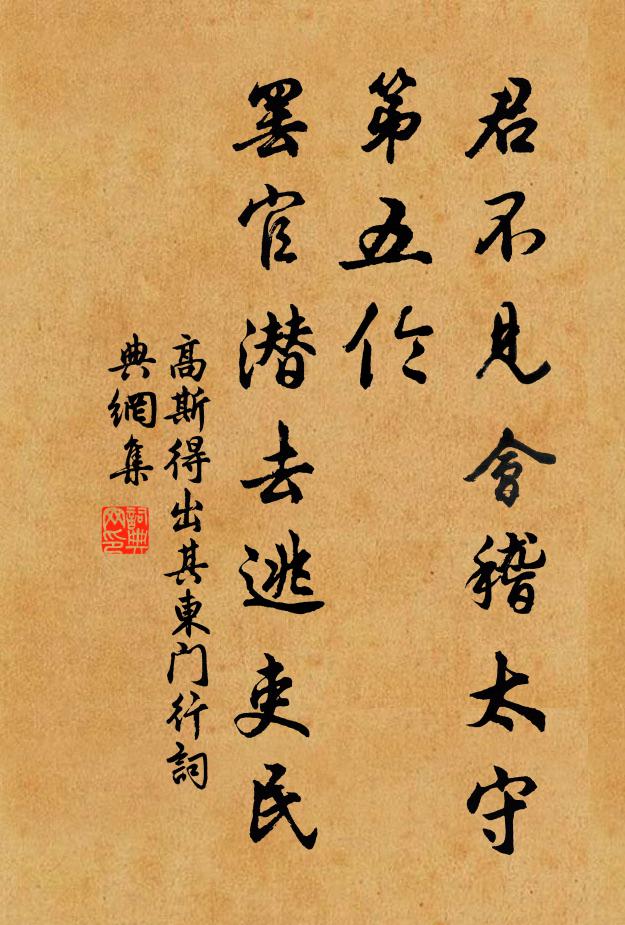 君不見會稽太守
第五伦
罢官潜去逃吏民
高斯得出其東门行詞
典網集
詞典網印